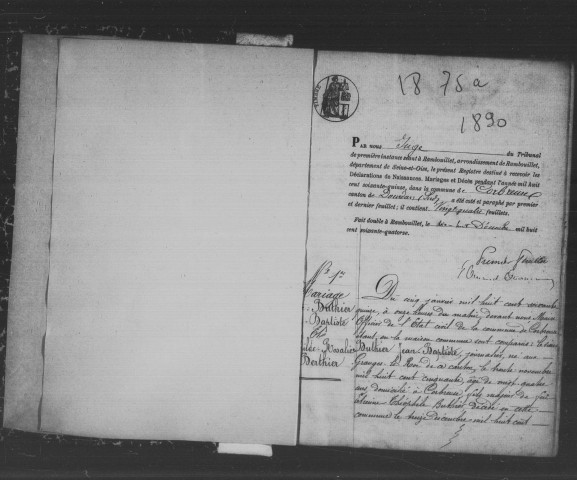 1875 a
1890
PAR nous Juge du Tribunal
de première instance séant à Rambouillet, arrondissement de Rambouillet,
département de Seine-et-Oise, le présent Registre destiné à recevoir les
Déclarations de Naissances, Mariages et Décès pendant l'année mil huit
cent soixante-quinze, dans la commune de Corbreuse
canton de Dourdan (Sud) a été coté et paraphé par premier
et dernier feuillet; il contient Vingt quatre feuillets.
Fait double à Rambouillet, le Décembre mil huit
cent soixante-quatorze.
Premier feuillet
N° 1er
Mariage
Buthier
Baptiste
Rosalie
Berthier
Du cinq janvier mil huit cent soixante
quinze, à onze heures du matin, devant nous
Officier de l'Etat civil de la commune de Corbreuse
étant en la maison commune ont comparu le sieur
Buthier Jean Baptiste, journalier, né aux
Granges-le-Roi de ce canton, le trente novembre
mil huit cent cinquante, âgé de vingt-quatre
ans, domicilié à Corbreuse, fils majeur de feu
Etienne Théophile Buthier décédé en cette
commune le treize décembre mil huit cent